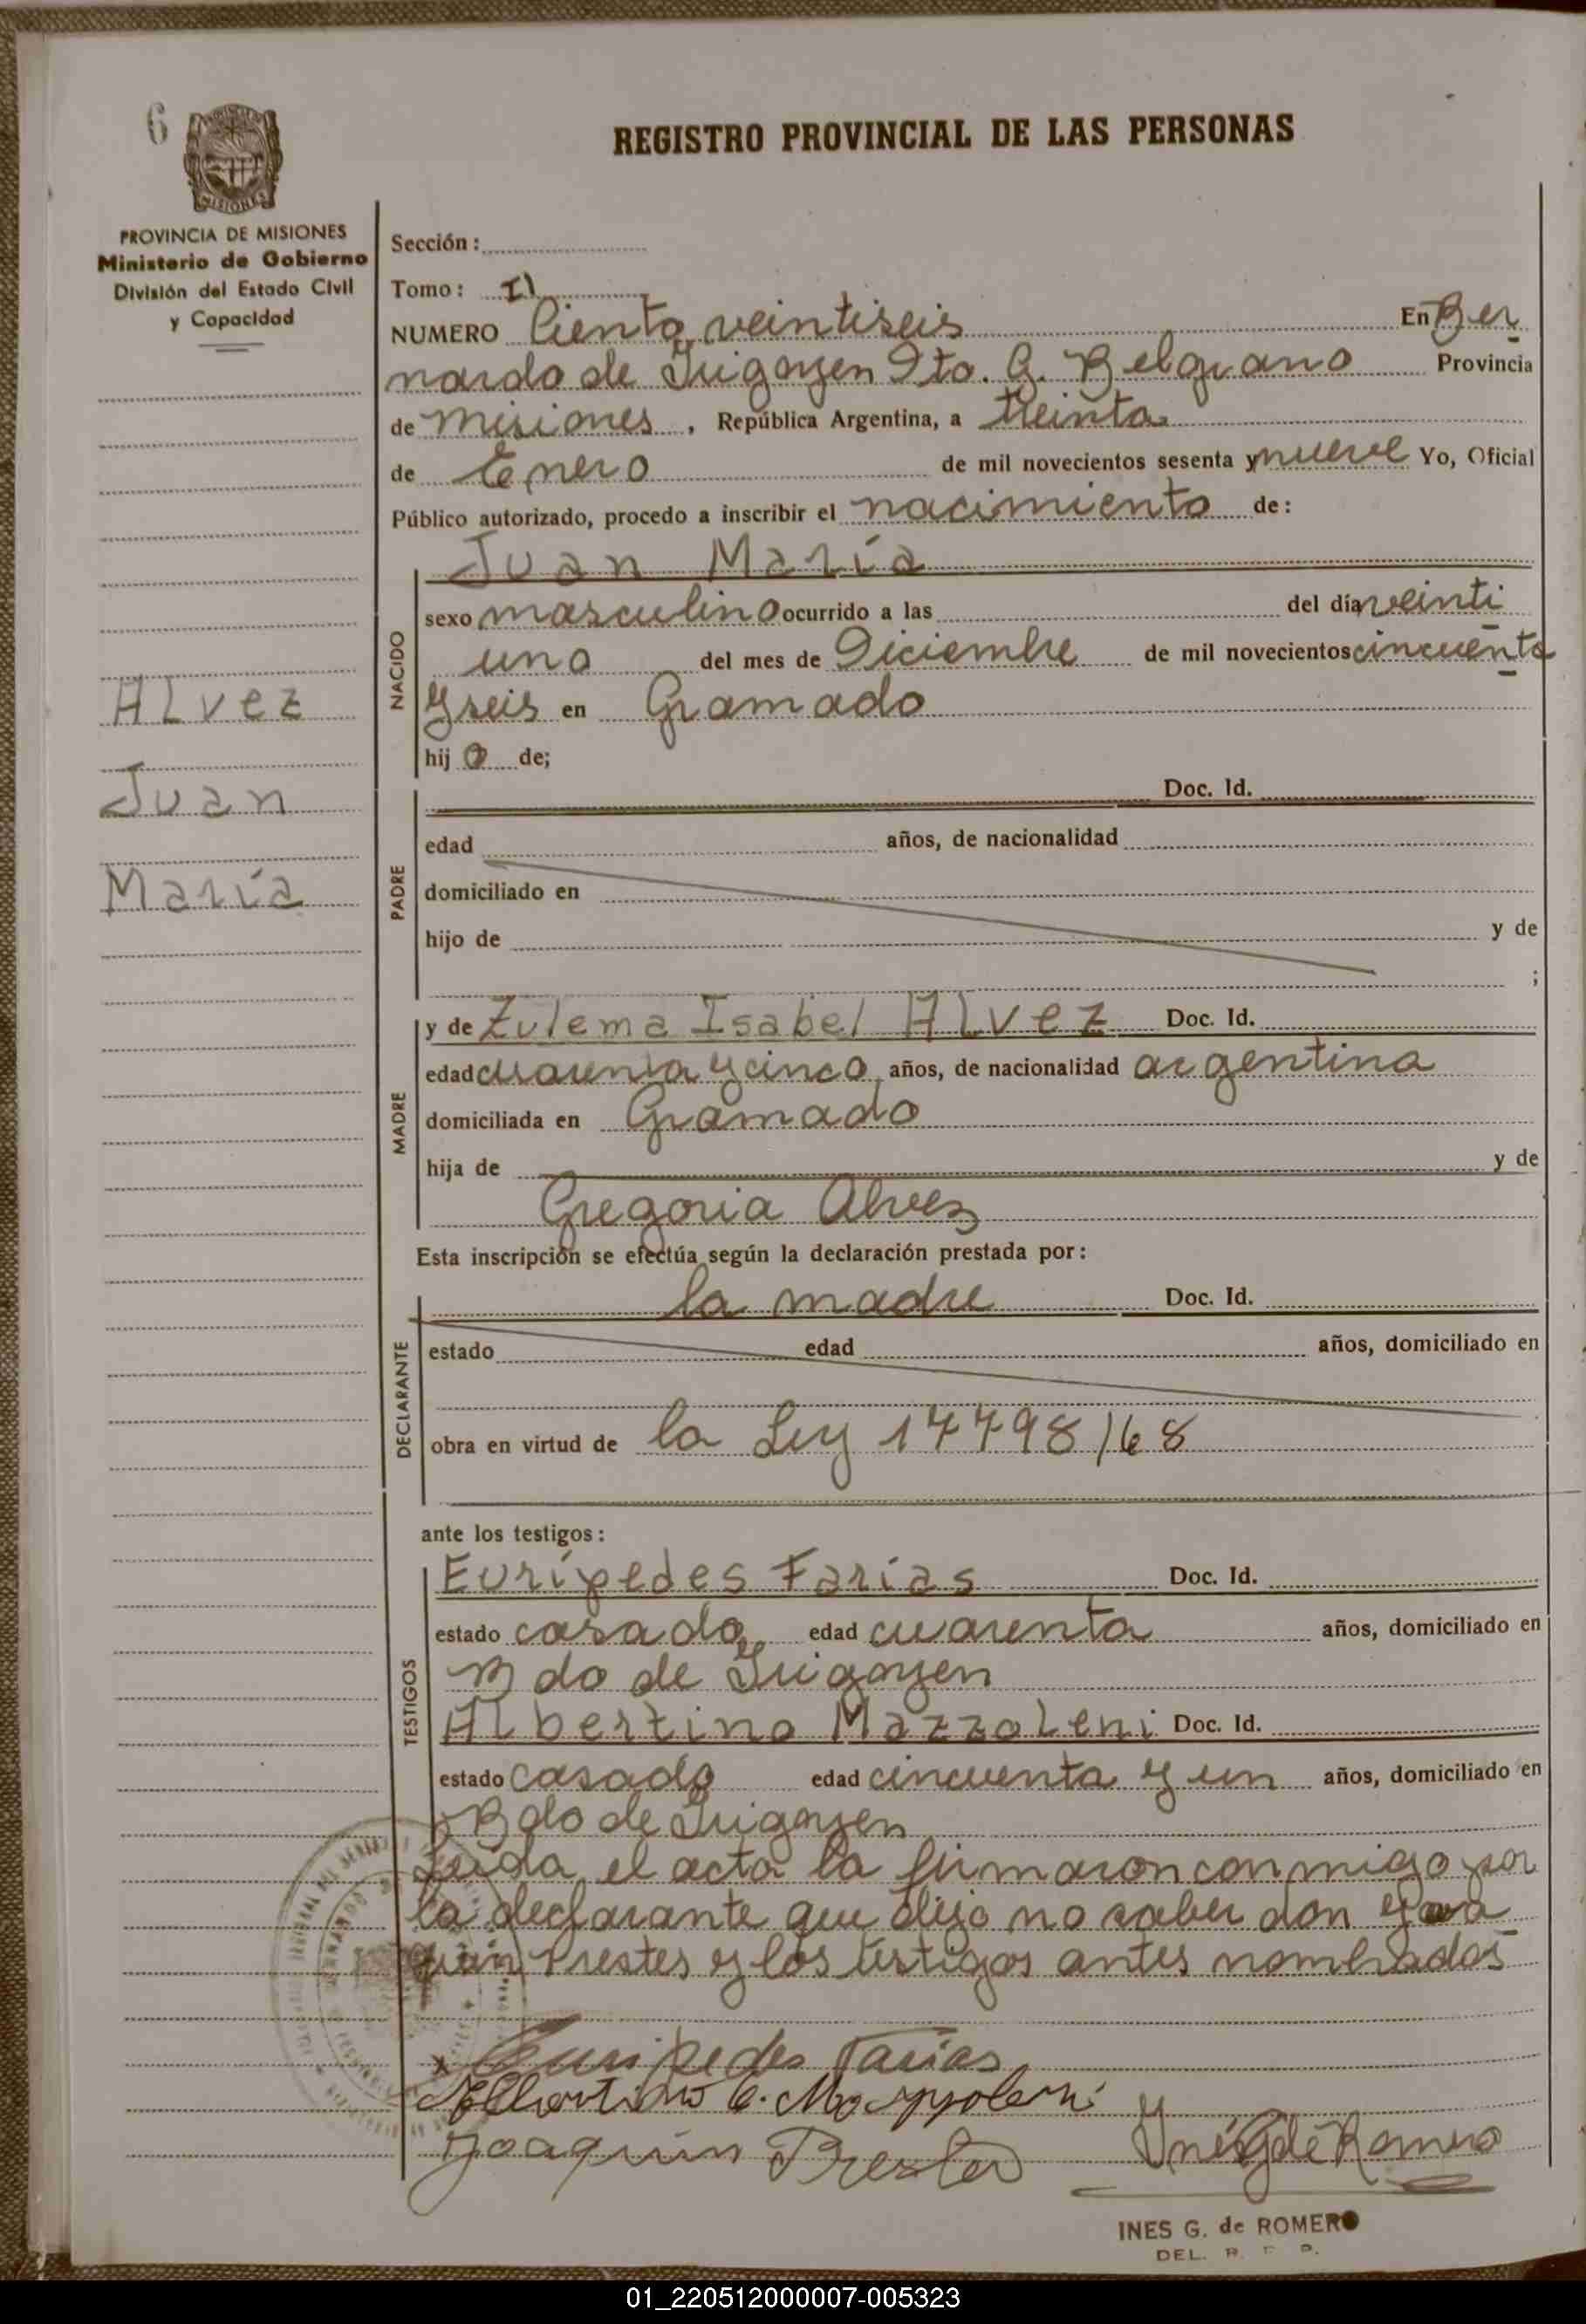 6
REGISTRO PROVINCIAL DE LAS PERSONAS
MISIONES
PROVINCIA DE MISIONES
Ministerio de Gobierno
División del Estado Civil
y Capacidad
Alvez
Juan
María
Sección:
Tomo: II
NUMERO Ciento veintiseis En Ber
nardo de Irigoyen Dto. G. Belgrano Provincia
de Misiones, República Argentina, a treinta
de Enero de mil novecientos sesenta y nueve Yo, Oficial
Público autorizado, procedo a inscribir el nacimiento de:
Juan María
NACIDO
sexo masculino ocurrido a las del día veinti
uno del mes de Diciembre de mil novecientos cincuenta
y seis en Gramado
hij o de;
PADRE
Doc. Id.
edad años, de nacionalidad
domiciliado en
hijo de y de
;
MADRE
y de Zulema Isabel Alvez Doc. Id.
edad cuarenta y cinco años, de nacionalidad argentina
domiciliada en Gramado
hija de y de
Gregoria Alvez
Esta inscripción se efectúa según la declaración prestada por:
DECLARANTE
la madre Doc. Id.
estado edad años, domiciliado en
obra en virtud de la Ley 17798/68
ante los testigos:
TESTIGOS
Eurípedes Farías Doc. Id.
estado casado edad cuarenta años, domiciliado en
Bdo de Irigoyen
Albertino Mazzoleni Doc. Id.
estado casado edad cincuenta y un años, domiciliado en
Bdo de Irigoyen
Leída el acta la firmaron conmigo por
la declarante que dijo no saber don Joa
quín Prestes y los testigos antes nombrados
Euripedes Farias
Albertino C. Mazzoleni
Joaquin Prestes
Inés G de Romero
INES G. de ROMERO
DEL. R. P.
01_220512000007-005323